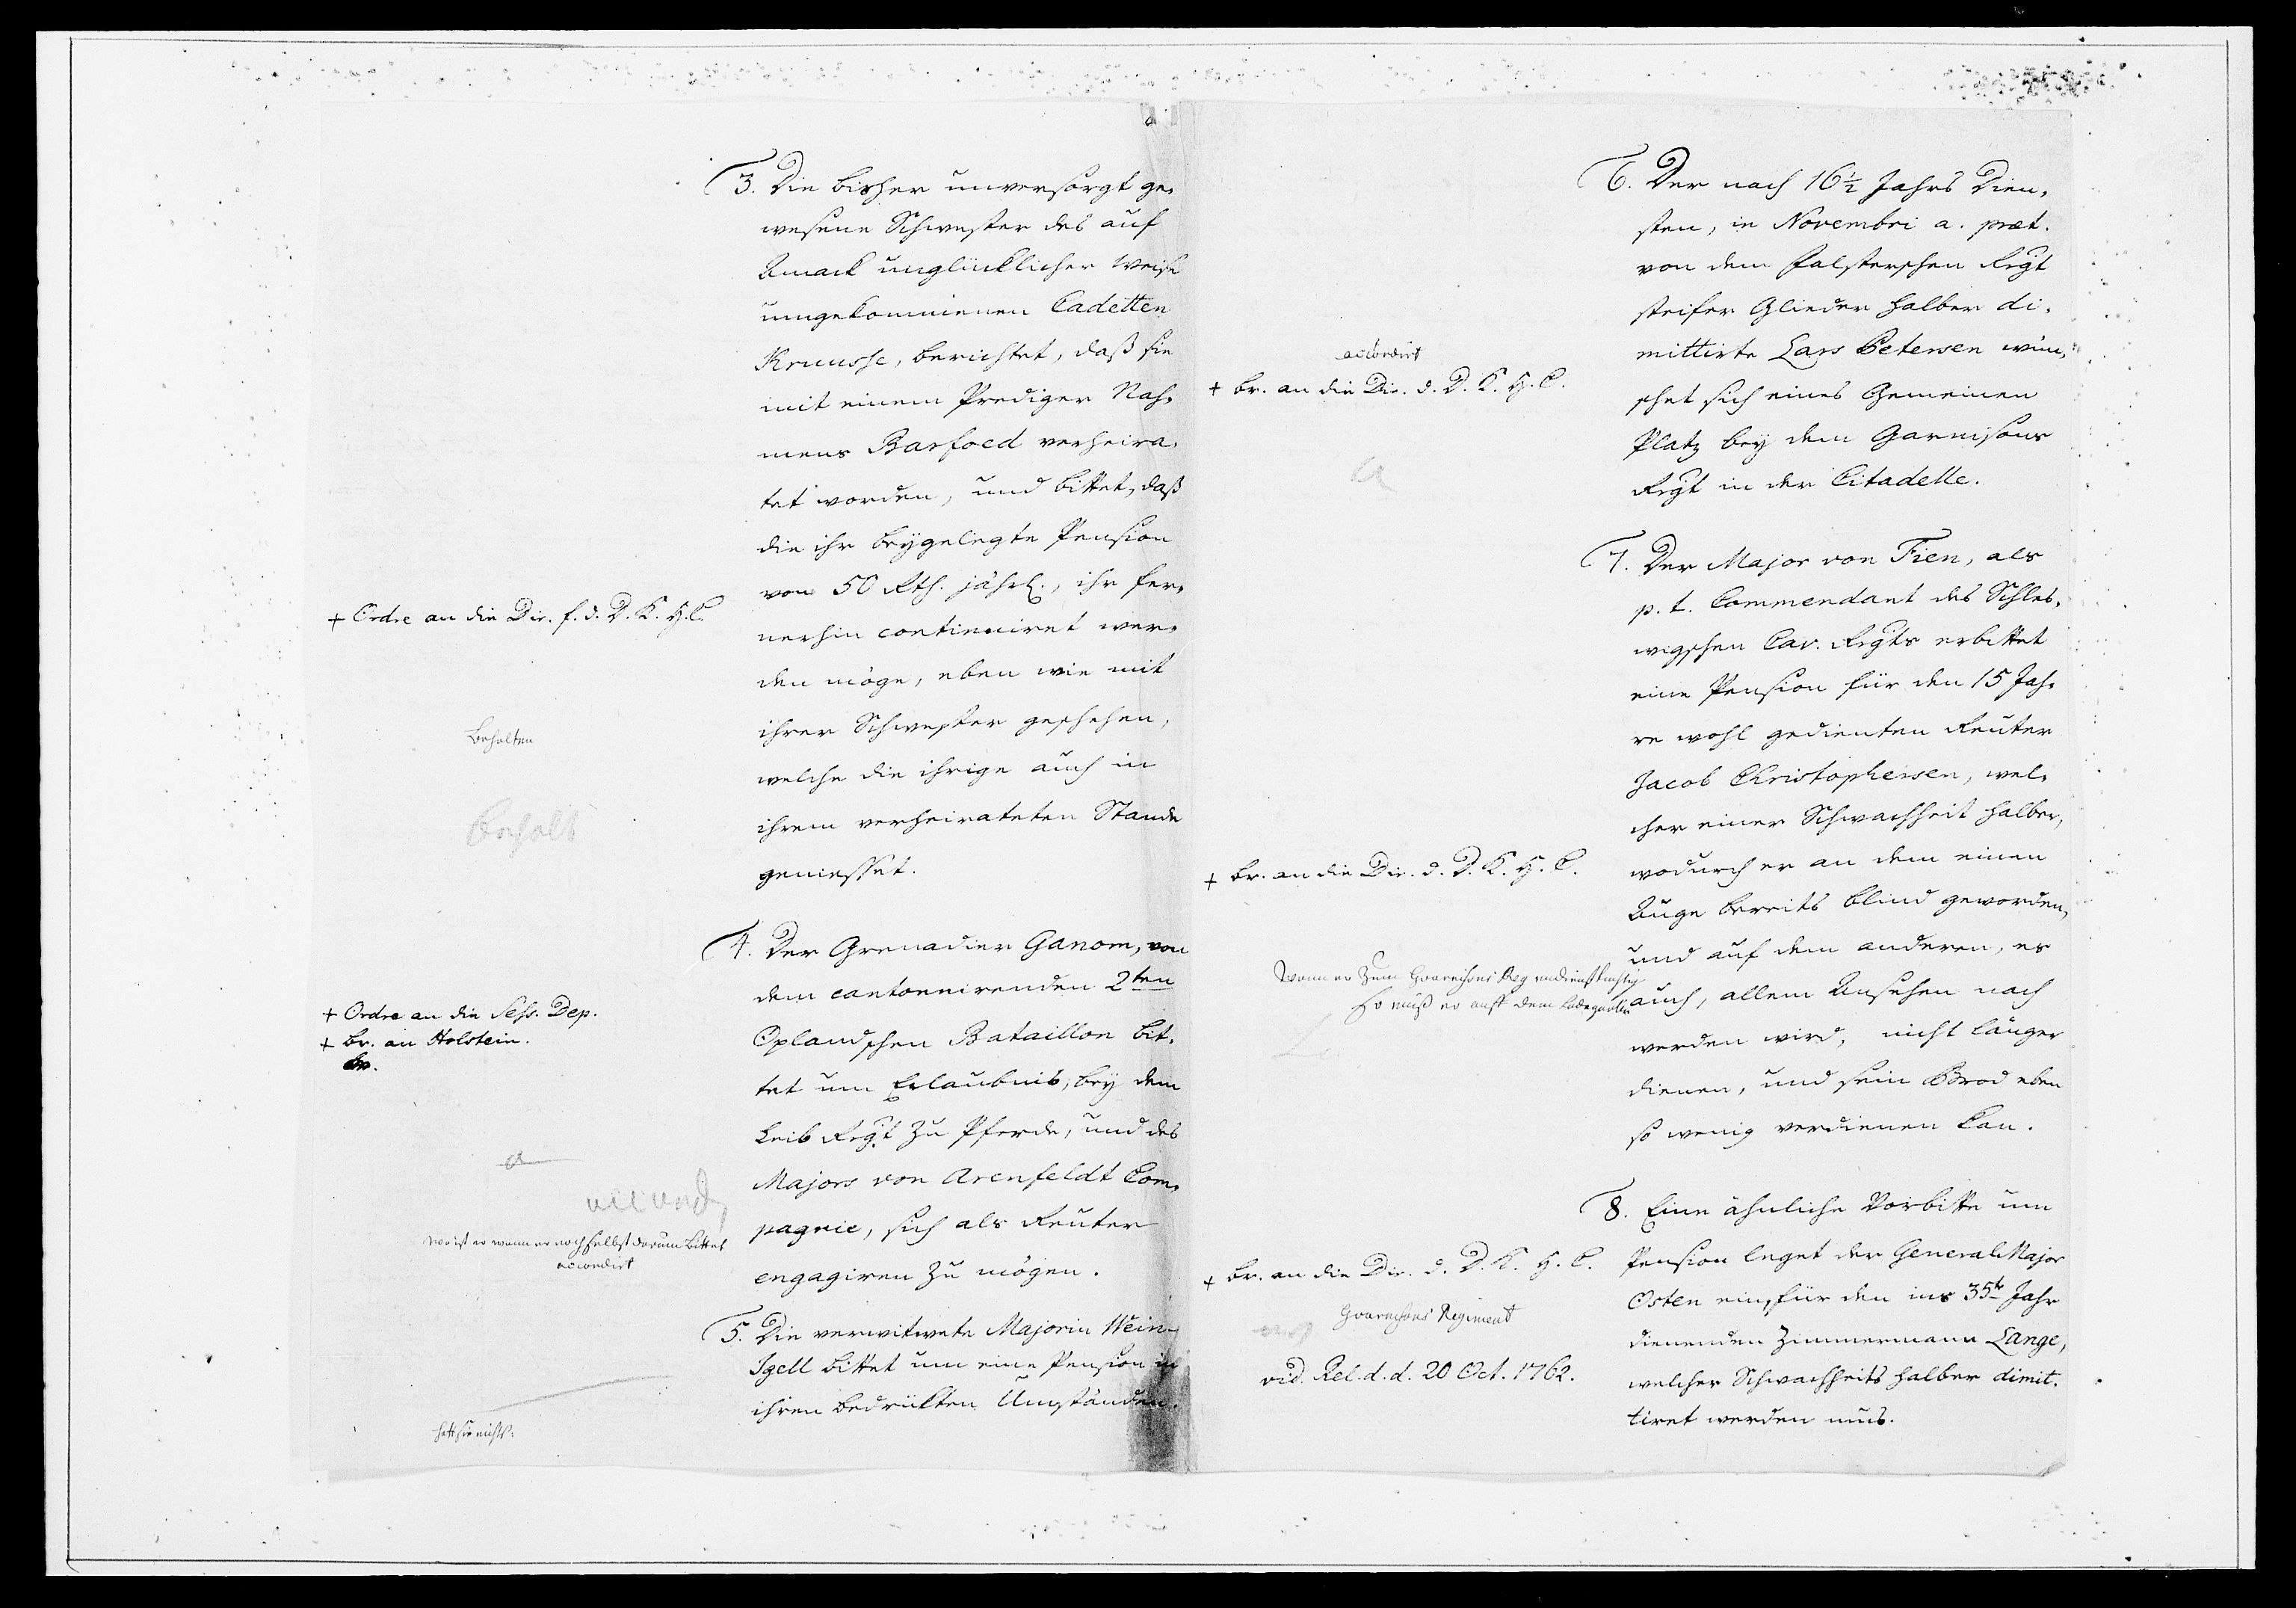 3. Die bisher unversorgt ge-
wesene Schwester des auf
Amack unglücklicher Weise
umgekommenen Cadetten
Kruusse, berichtet, daß sie
mit einem Prediger Nah-
mens Barfoed verheira-
tet worden, und bittet, daß
die ihr beygelegte Pension
von 50 Rth. jährl., ihr fer-
nerhin continuiret wer-
den möge, eben wie mit
ihrer Schwester geschehen,
welche die ihrige auch in
ihrem verheirateten Stande
geniesset.
+ Ordre an die Dir. f. d. D. K. H. C.
behalten
behalt
4. Der Grenadier Ganom, von
dem cantonnirenden 2ten
Oplandschen Bataillon bit-
tet um Erlaubnis, bey dem
Leib Regt zu Pferde, und des
Majors von Arenfeldt Com-
pagnie, sich als Reuter
engagiren zu mögen.
+ Ordre an die Sess. Dep.
+ Br. an Holstein.
a
accord
wo ist er wann er noch selbst darum bittet
accordirt
5. Die verwitwete Majorin Wein-
Igell bittet um eine Pension in
ihren bedrükten Umständen.
hatt sie nichts.
6. Der nach 16½ Jahrs Dien-
sten, in Novembri a. præt.
von dem Falsterschen Regt
steifer Glieder halber di-
mittirte Lars Petersen wün-
schet sich eines Gemeinen
Platz bey dem Garnisons
Regt in der Citadelle.
accordirt
+ Br. an die Dir. d. D. K. H. C.
a
7. Der Major von Fien, als
p. t. Commendant des Schles-
wigschen Cav. Regts erbittet
eine Pension für den 15 Jah-
re wohl gedienten Reuter
Jacob Christophersen, wel-
cher einer Schwachheit halber,
wodurch er an dem einen
Auge bereits blind geworden,
und auf dem anderen, es
auch, allem Ansehen nach
werden wird, nicht länger
dienen, und sein Brod eben
so wenig verdienen kan.
+ Br. an die Dir. d. D. K. H. C.
Wann er zum Guarnisons Reg undienstüchtig
so muß er auff dem
8. Eine ähnliche Vorbitte um
Pension leget der General Major
Osten ein, für den ins 35te Jahr
dienenden Zimmermann Lange,
welcher Schwachheits halber dimit-
tiret werden mus.
+ Br. an die Dir. d. D. K. H. C.
Guarnisons Regiment
vid. Rel. d. d. 20 Oct. 1762.